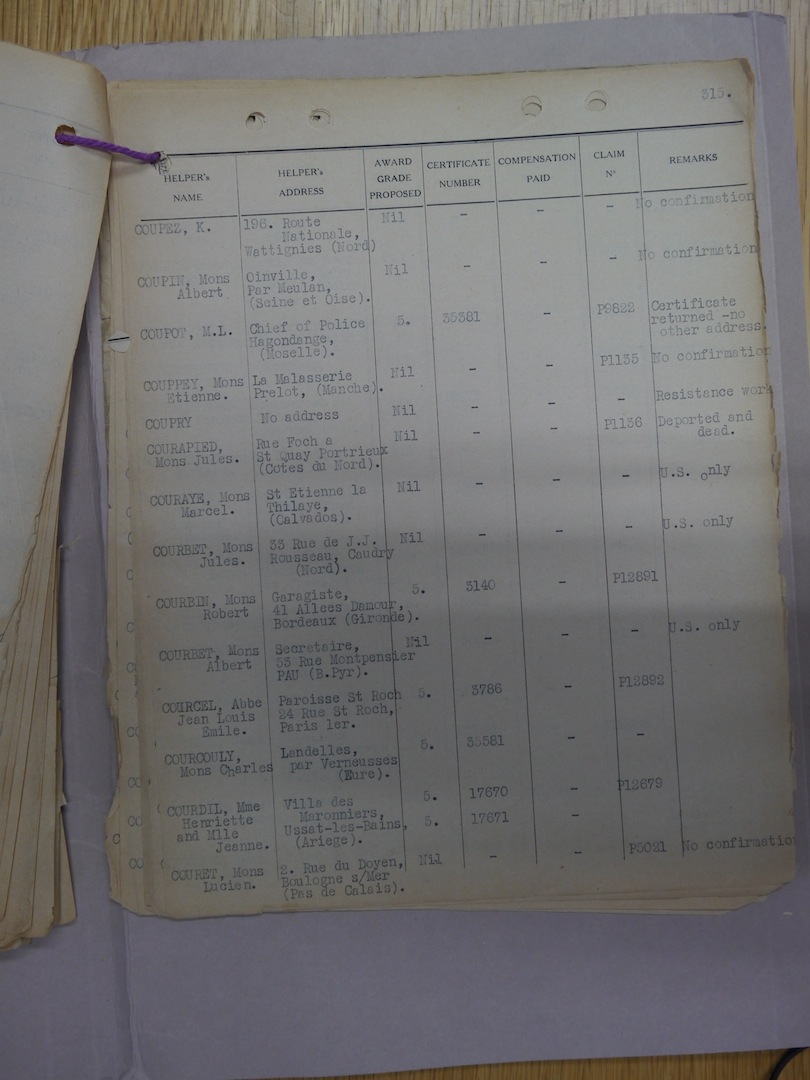 315.
HELPER's NAME | HELPER's ADDRESS | AWARD GRADE PROPOSED | CERTIFICATE NUMBER | COMPENSATION PAID | CLAIM Nº | REMARKS
COUPEZ, K. 196. Route Nil - - - No confirmation
Nationale,
Wattignies (Nord)
COUPIN, Mons Oinville, Nil - - - No confirmation
Albert Par Meulan,
(Seine et Oise).
COUPOT, M.L. Chief of Police 5. 35381 - P9822 Certificate
Hagondange, returned -no
(Moselle). other address.
COUPPEY, Mons La Malasserie Nil - - P1135 No confirmation
Etienne. Prelot, (Manche).
COUPRY No address Nil - - - Resistance work
COURAPIED, Rue Foch a Nil - - P1136 Deported and
Mons Jules. St Quay Portrieux dead.
(Cotes du Nord).
COURAYE, Mons St Etienne la Nil - - - U.S. only
Marcel. Thilaye,
(Calvados).
COURBET, Mons 33 Rue de J.J. Nil - - - U.S. only
Jules. Rousseau, Caudry
(Nord).
COURBIN, Mons Garagiste, 5. 3140 - P12891
Robert 41 Allees Damour,
Bordeaux (Gironde).
COURBET, Mons Secretaire, Nil - - - U.S. only
Albert 53 Rue Montpensier
PAU (B.Pyr).
COURCEL, Abbe Paroisse St Roch 5. 3786 - P12892
Jean Louis 24 Rue St Roch,
Emile. Paris 1er.
COURCOULY, Landelles, 5. 35581 - -
Mons Charles par Verneusses
(Eure).
COURDIL, Mme Villa des 5. 17670 - P12679
Henriette Maronniers,
and Mlle Ussat-les-Bains, 5. 17671 -
Jeanne. (Ariege).
COURET, Mons 2. Rue du Doyen, Nil - - P5021 No confirmation
Lucien. Boulogne s/Mer
(Pas de Calais).